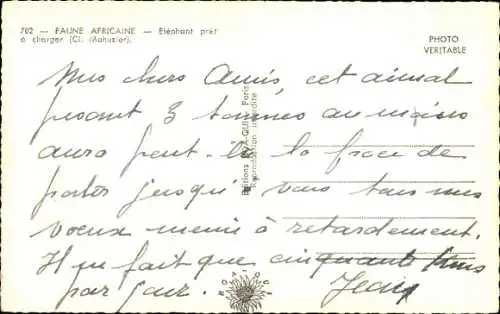 702 — FAUNE AFRICAINE — Eléphant prêt
à charger (Cl. Mahuzier).
PHOTO
VERITABLE
Mes chers Amis, cet animal
pesant 3 tonnes au moins
aura peut-être la force de
porter jusqu'à vous tous mes
voeux même à retardement.
Il ne fait que cinquante kms
par jour. Jean
Editions HOA-QUI Paris
Reproduction interdite
HOA-QUI